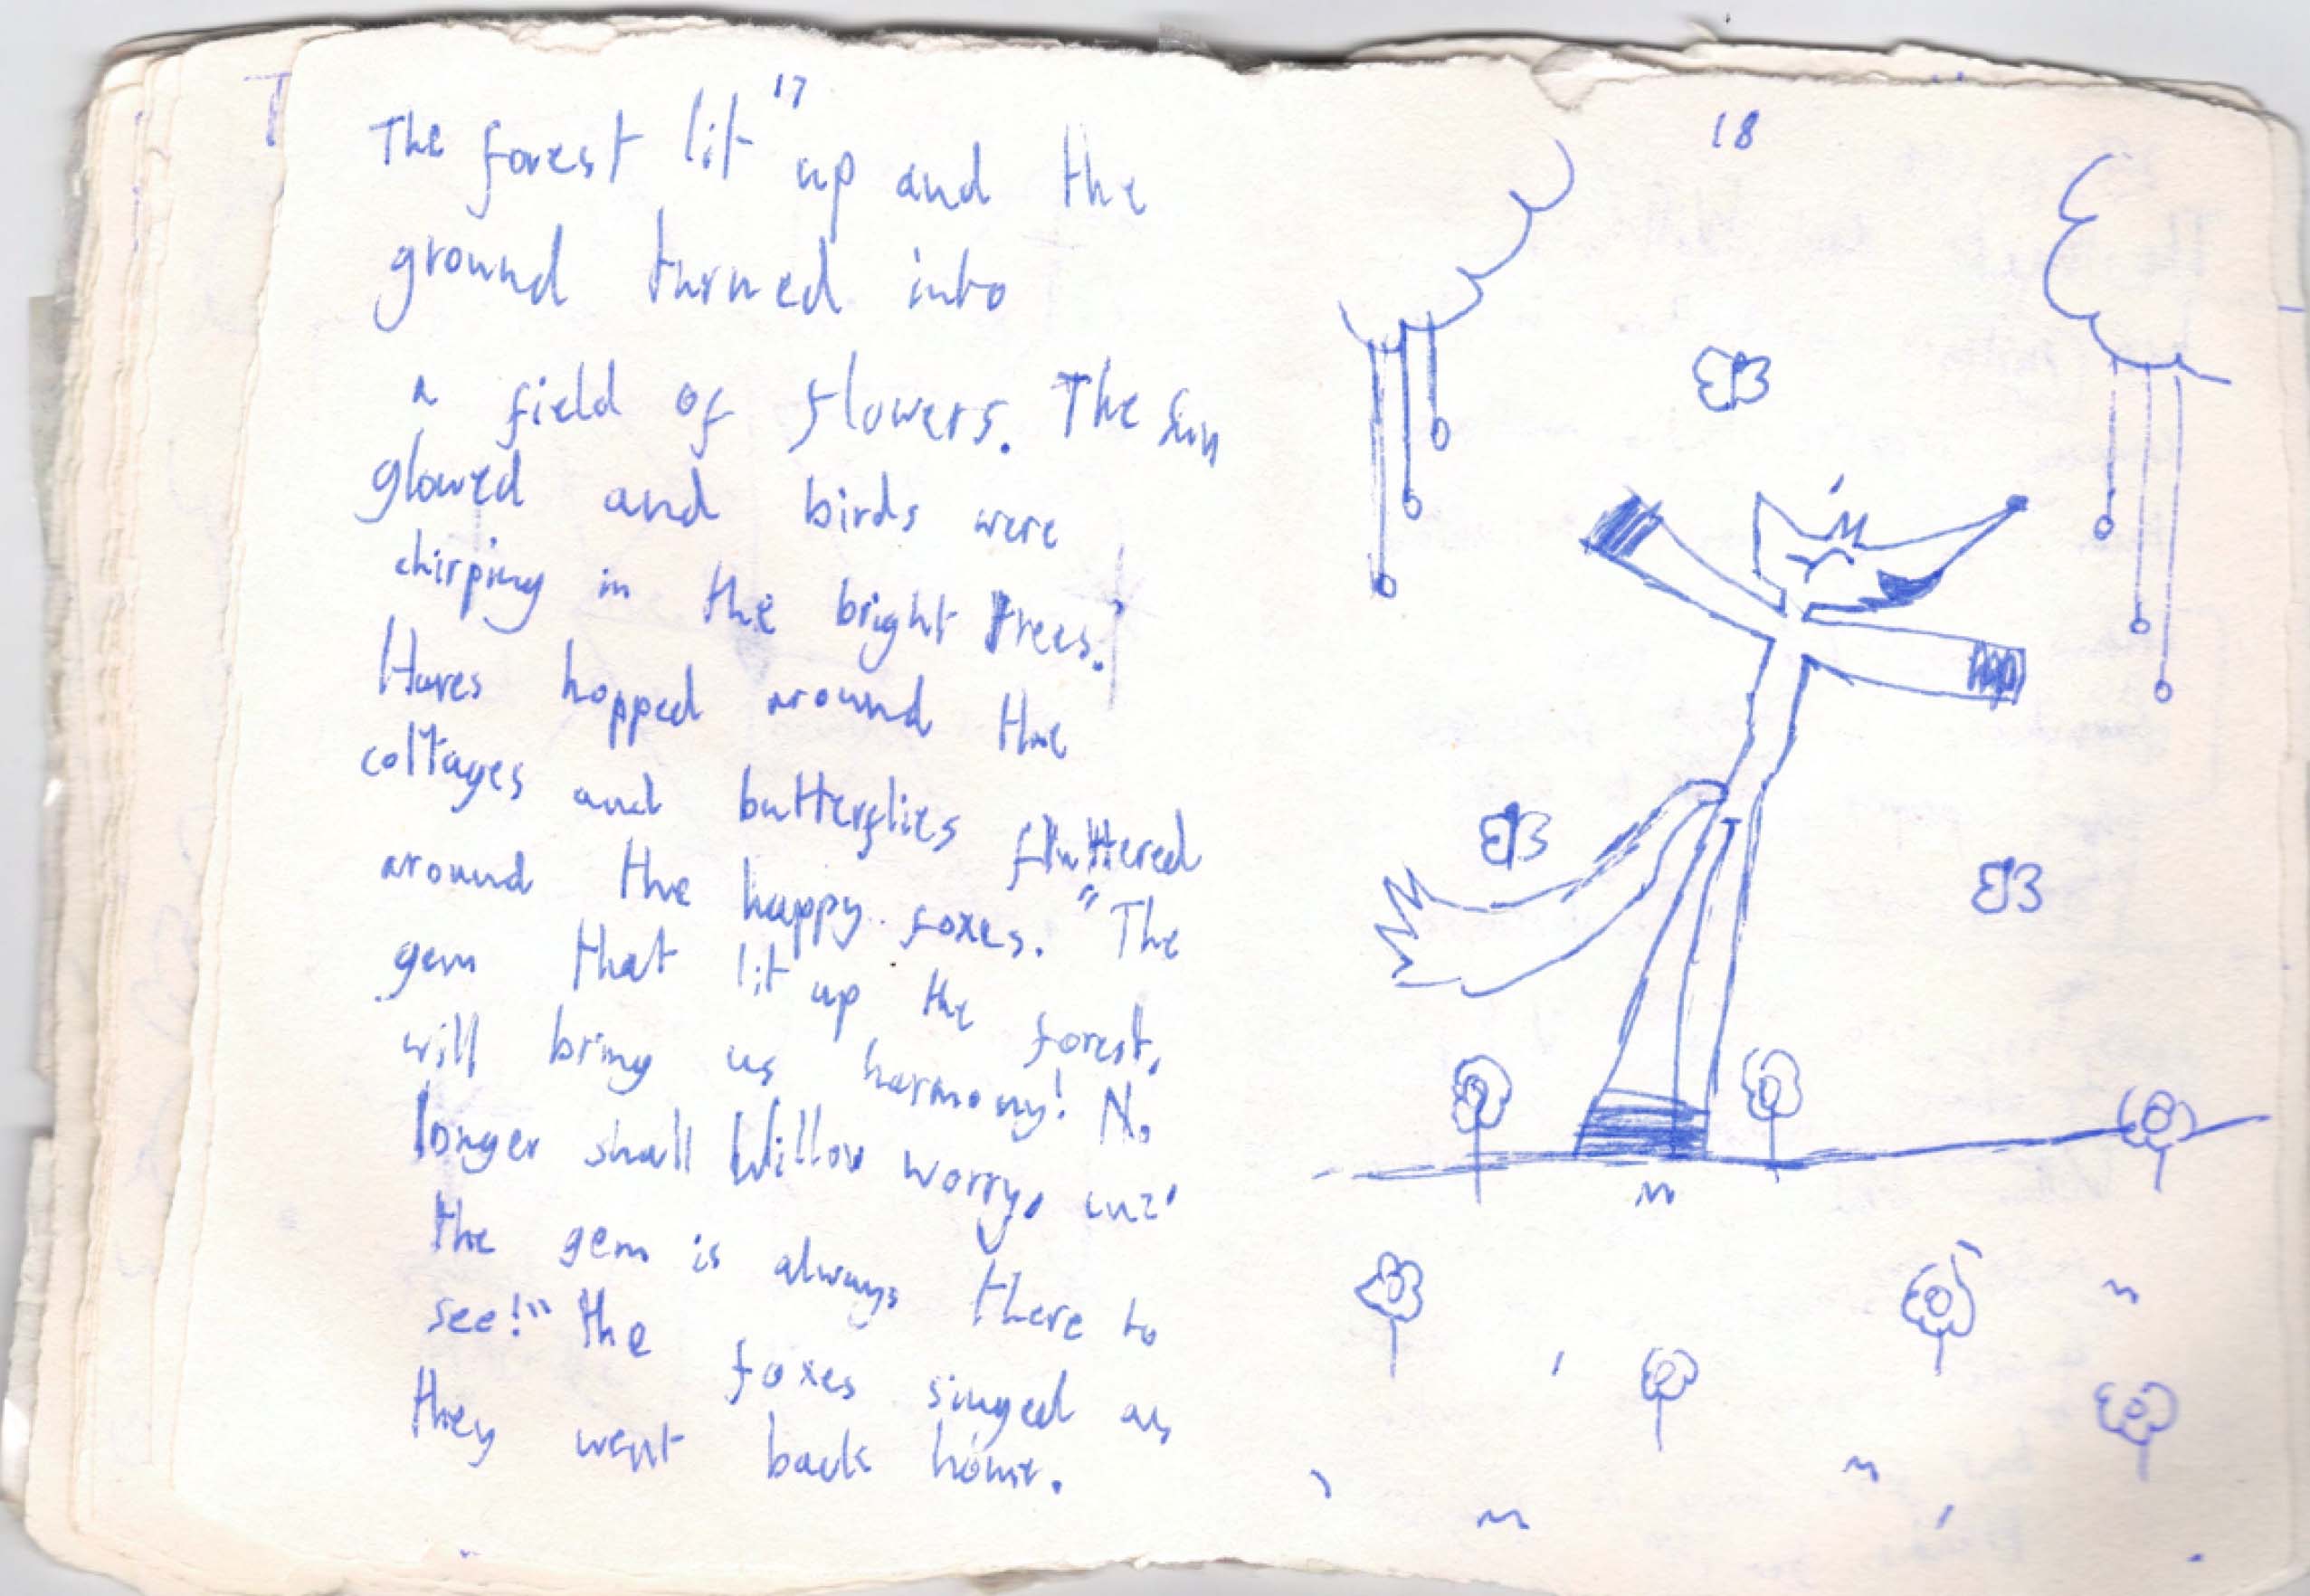 17
The forest lit up and the
ground turned into
a field of flowers. The sun
glowed and birds were
chirping in the bright trees.
Hares hopped around the
cottages and butterflies fluttered
around the happy foxes. "The
gem that lit up the forest,
will bring us harmony! No
longer shall Willow worry, cuz'
the gem is always there to
see!" the foxes singed as
they went back home.
18